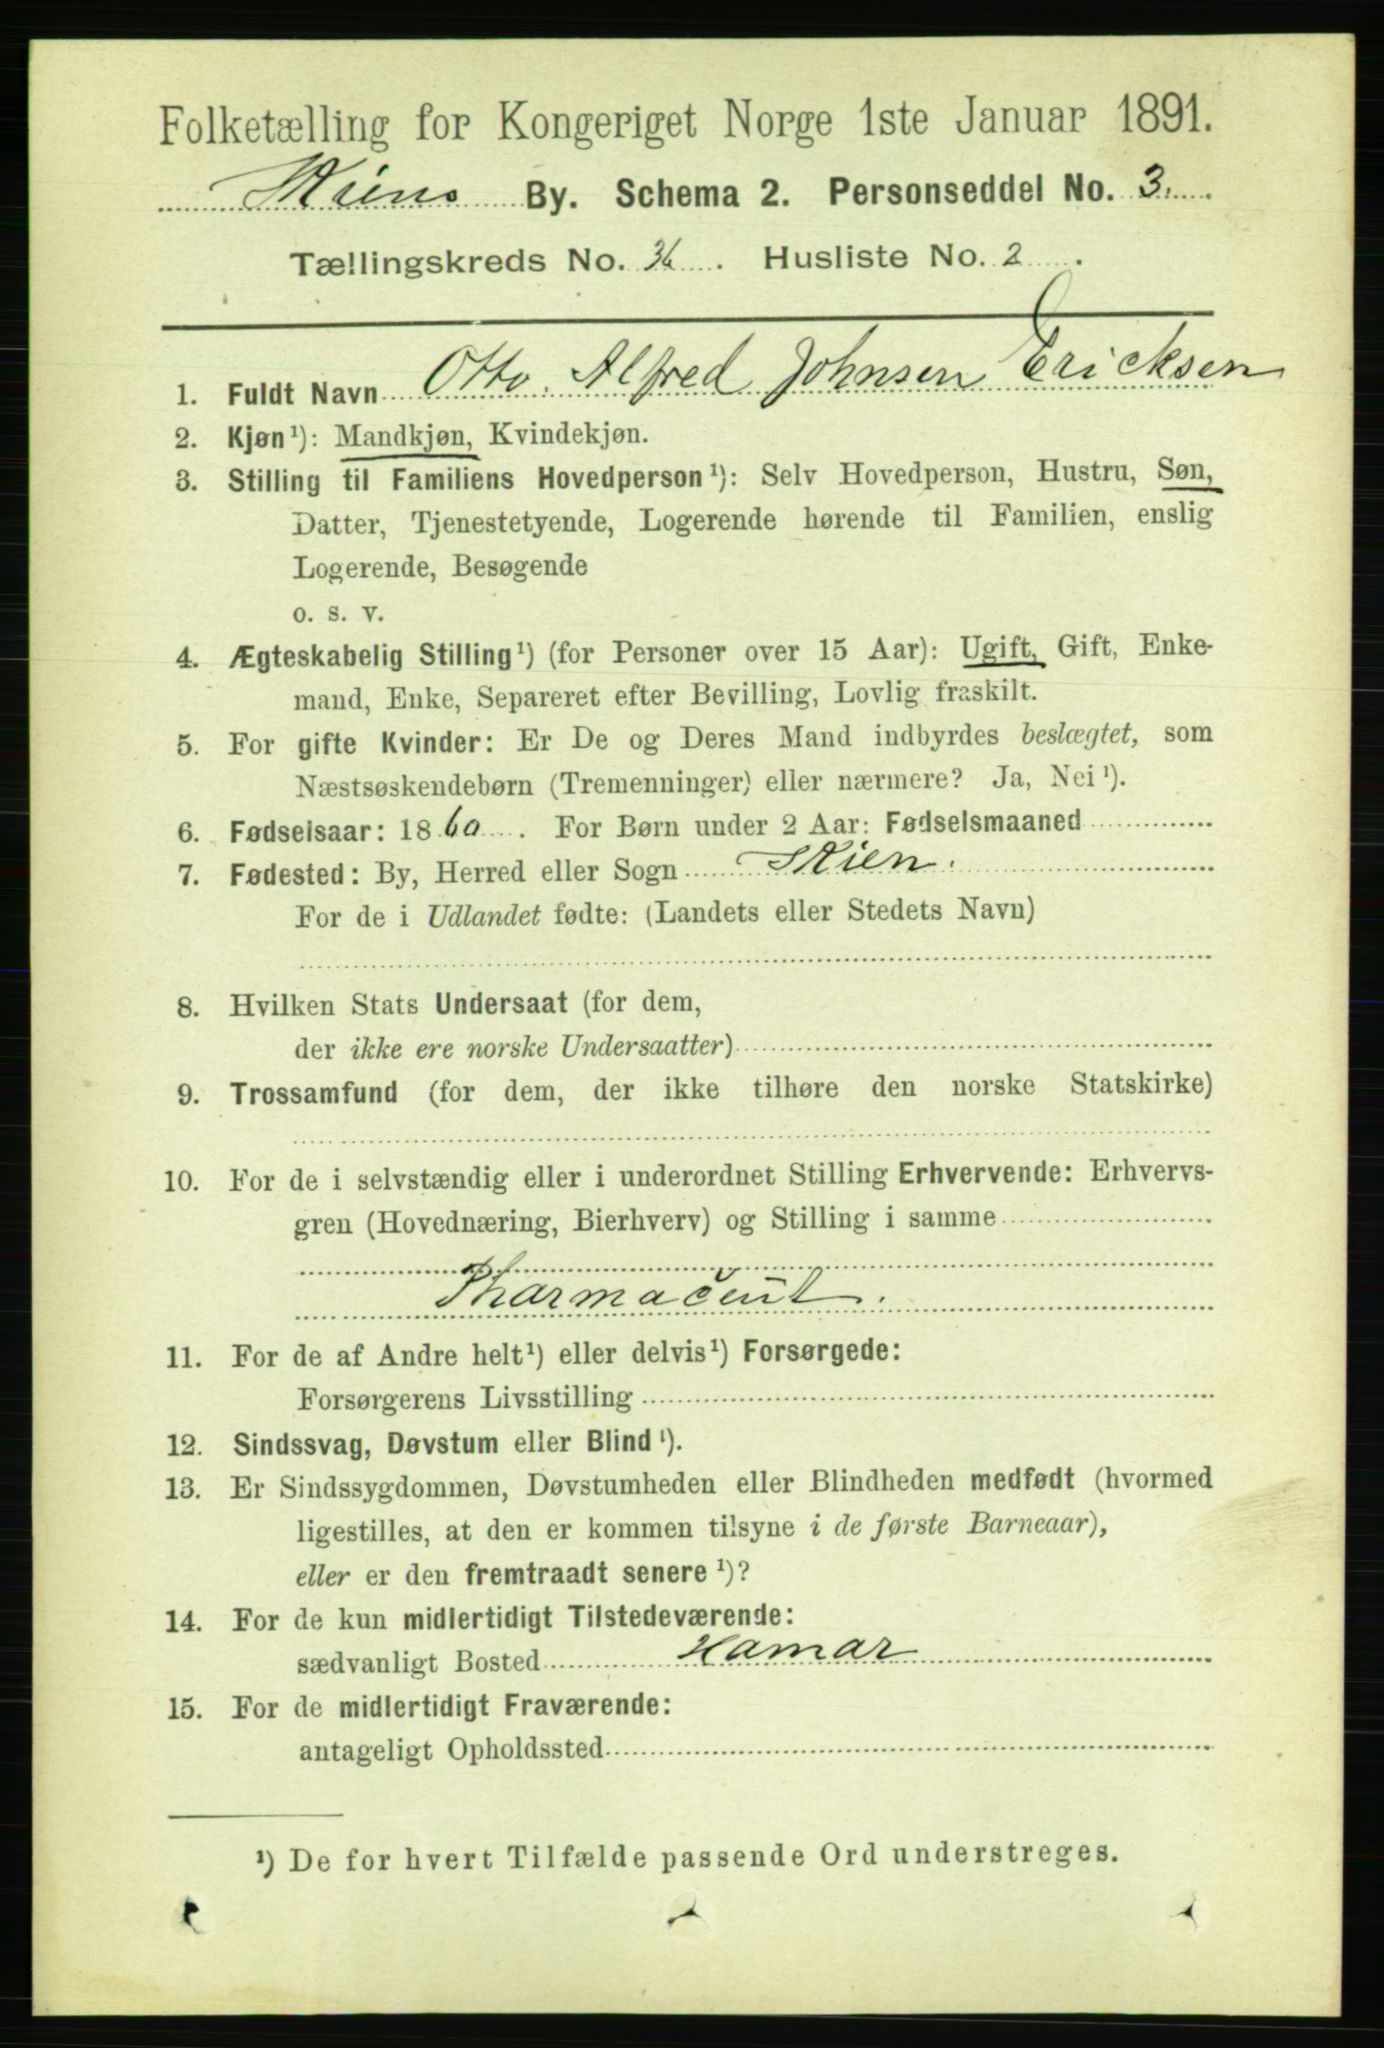 Folketælling for Kongeriget Norge 1ste Januar 1891.
Skiens By. Schema 2. Personseddel No. 3.
Tællingskreds No. 36. Husliste No. 2.
1. Fuldt Navn Otto Alfred Johnsen Ericksen
2. Kjøn¹): Mandkjøn, Kvindekjøn.
3. Stilling til Familiens Hovedperson¹): Selv Hovedperson, Hustru, Søn,
Datter, Tjenestetyende, Logerende hørende til Familien, enslig
Logerende, Besøgende
o. s. v.
4. Ægteskabelig Stilling¹) (for Personer over 15 Aar): Ugift, Gift, Enke-
mand, Enke, Separeret efter Bevilling, Lovlig fraskilt.
5. For gifte Kvinder: Er De og Deres Mand indbyrdes beslægtet, som
Næstsøskendebørn (Tremenninger) eller nærmere? Ja, Nei¹).
6. Fødselsaar: 1860. For Børn under 2 Aar: Fødselsmaaned
7. Fødested: By, Herred eller Sogn Skien.
For de i Udlandet fødte: (Landets eller Stedets Navn)
8. Hvilken Stats Undersaat (for dem,
der ikke ere norske Undersaatter)
9. Trossamfund (for dem, der ikke tilhøre den norske Statskirke)
10. For de i selvstændig eller i underordnet Stilling Erhvervende: Erhvervs-
gren (Hovednæring, Bierhverv) og Stilling i samme
Pharmaceut.
11. For de af Andre helt¹) eller delvis¹) Forsørgede:
Forsørgerens Livsstilling
12. Sindssvag, Døvstum eller Blind¹).
13. Er Sindssygdommen, Døvstumheden eller Blindheden medfødt (hvormed
ligestilles, at den er kommen tilsyne i de første Barneaar),
eller er den fremtraadt senere¹)?
14. For de kun midlertidigt Tilstedeværende:
sædvanligt Bosted Hamar
15. For de midlertidigt Fraværende:
antageligt Opholdssted
¹) De for hvert Tilfælde passende Ord understreges.